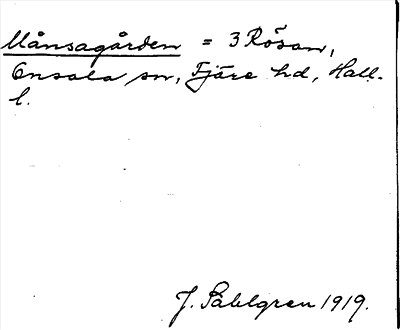 Månsagården = 3 Rösan,
Onsala sn, Fjäre hd, Hall.
l.
J. Sahlgren 1919.